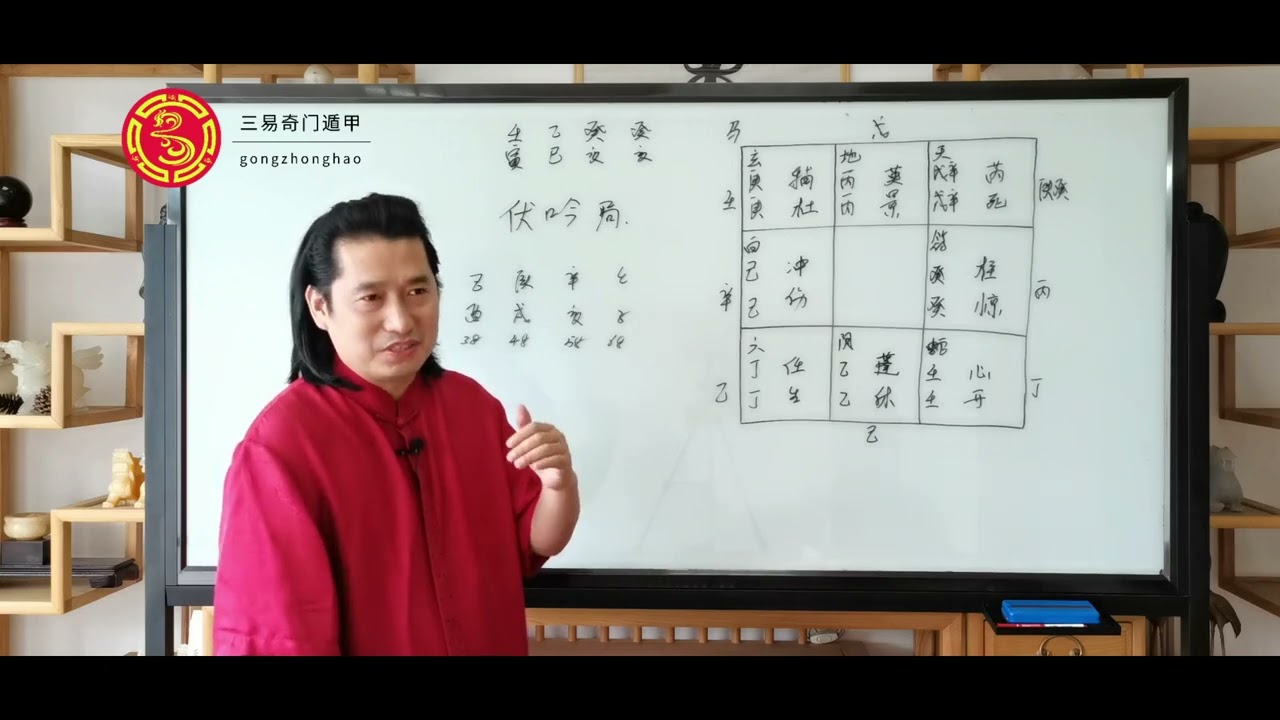 三易奇门遁甲
gongzhonghao
壬 乙 癸 癸
寅 巳 亥 亥
伏吟局.
乙 庚 辛
酉 戌 亥 子
38 48 58 68
马
玄 地 天
庚 辅 丙 英 戊辛 芮
壬 庚 杜 丙 景 戊辛 死
白
己 冲 癸 柱
辛 己 伤 癸 惊 丙
六 阴 蛇
丁 任 乙 蓬 壬 心
乙 丁 生 乙 休 壬 开 丁
己